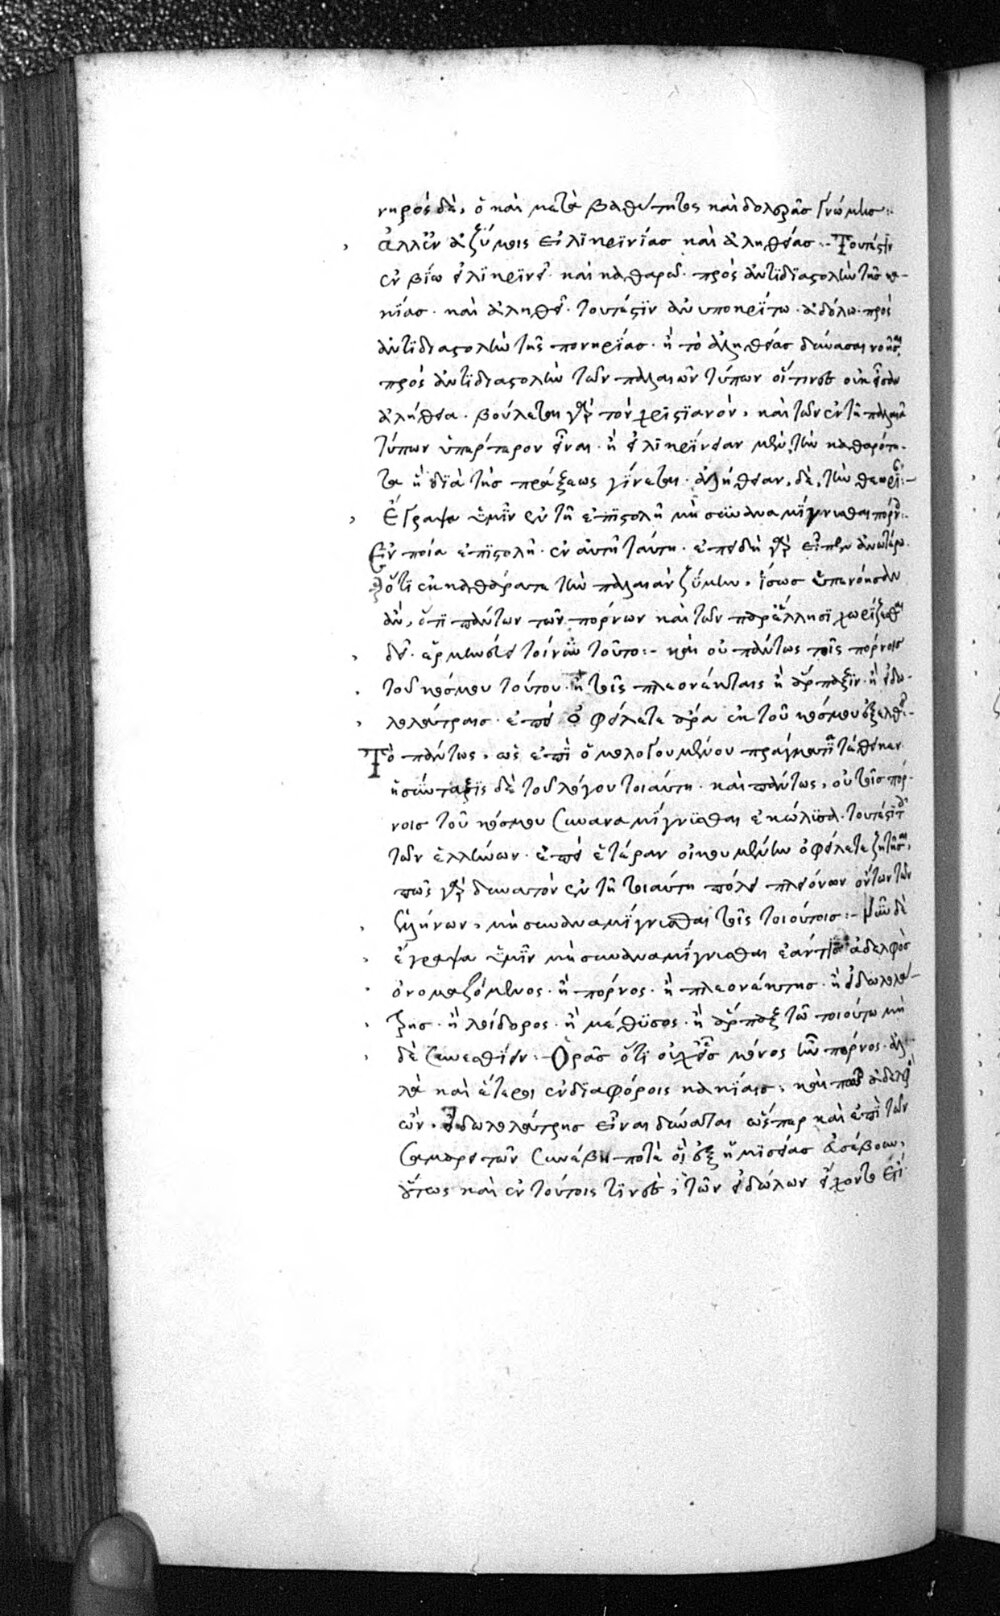 νηρὸς δὲ, ὁ καὶ μετὰ βαθύτητος καὶ δολερᾶς γνώμης :
ἀλλ' ἐν ἀζύμοις εἰλικρινείας καὶ ἀληθείας :- Τουτέστιν
ἐν βίῳ εἰλικρινεῖ καὶ καθαρῷ· πρὸς ἀντιδιαστολὴν τῆς κα-
κίας· καὶ ἀληθεῖ· τουτέστιν ἀνυποκρίτῳ· ἀδόλῳ· πρὸς
ἀντιδιαστολὴν τῆς πονηρίας· ἢ τὸ ἀληθείας δύνασαι νοῆσαι
πρὸς ἀντιδιαστολὴν τῶν παλαιῶν τύπων οἵτινες οὐκ ἦσαν
ἀλήθεια· βούλεται γὰρ τὸν χριστιανὸν, καὶ τῶν ἐν τῇ παλαιᾷ
τύπων ὑπέρτερον εἶναι· ἢ εἰλικρίνειαν μὲν, τὴν καθαρότη-
τα ἣ διὰ τῆς πράξεως γίνεται· ἀλήθειαν, δὲ, τὴν θεωρί :-
Ἔγραψα ὑμῖν ἐν τῇ ἐπιστολῇ μὴ συναναμίγνυσθαι πόρν :
Ἐν ποία ἐπιστολῇ· ἐν αὐτῇ ταύτη· ἐπειδὴ γὰρ εἶπεν ἀνωτέρω
ὅτι ἐκκαθάρατε τὴν παλαιὰν ζύμην, ἴσως ὑπενόησαν
ἂν, ὅτι πάντων τῶν πόρνων καὶ τῶν παρ' ἕλλησι χωρίζεσθαι
δεῖ· ἑρμηνεύει τοίνυν τοῦτο :- καὶ οὐ πάντως τοῖς πόρνοις
τοῦ κόσμου τούτου· ἢ τοῖς πλεονέκταις ἢ ἅρπαξιν· ἢ εἰδω-
λολάτραις· ἐπεὶ ὀφείλετε ἄρα ἐκ τοῦ κόσμου ἐξελθεῖν :-
Τὸ πάντως, ὡς ἐπὶ ὁμολογουμένου πράγματι τέθεικεν
ἡ σύνταξις δὲ τοῦ λόγου τοιαύτη· καὶ πάντως, οὐ τοῖς πόρ-
νοις τοῦ κόσμου συναναμίγνυσθαι ἐκώλυσα· τουτέστι τοῖς
τῶν ἑλλήνων· ἐπεὶ ἑτέραν οἰκουμένην ὀφείλετε ζητῆσαι·
πῶς γὰρ δυνατὸν ἐν τῇ τοιαύτη πόλει πλειόνων ὄντων τῶν
ἑλλήνων, μὴ συναναμίγνυσθαι τοῖς τοιούτοις :- Νῦν δὲ
ἔγραψα ὑμῖν μὴ συναναμίγνυσθαι ἐάν τις ἀδελφὸς
ὀνομαζόμενος· ἢ πόρνος· ἢ πλεονέκτης· ἢ εἰδωλολά-
τρης· ἢ λοίδορος· ἢ μέθυσος· ἢ ἅρπαξ τῷ τοιούτῳ μη
δὲ συνεσθίειν :- Ὁρᾶς ὅτι οὐχ εἷς μόνος ἦν πόρνος· ἀλ-
λὰ καὶ ἕτεροι ἐν διαφόροις κακίαις, καὶ πῶς ἀδελφὸς
ὢν, εἰδωλολάτρης εἶναι δύναται ὥσπερ καὶ ἐπὶ τῶν
σαμαρειτῶν συνέβη ποτὲ οἳ ἐξ ἡμισείας εὐσέβουν,
οὕτως καὶ ἐν τούτοις τινὲς, τῶν εἰδώλων εἴχοντο ἔτι